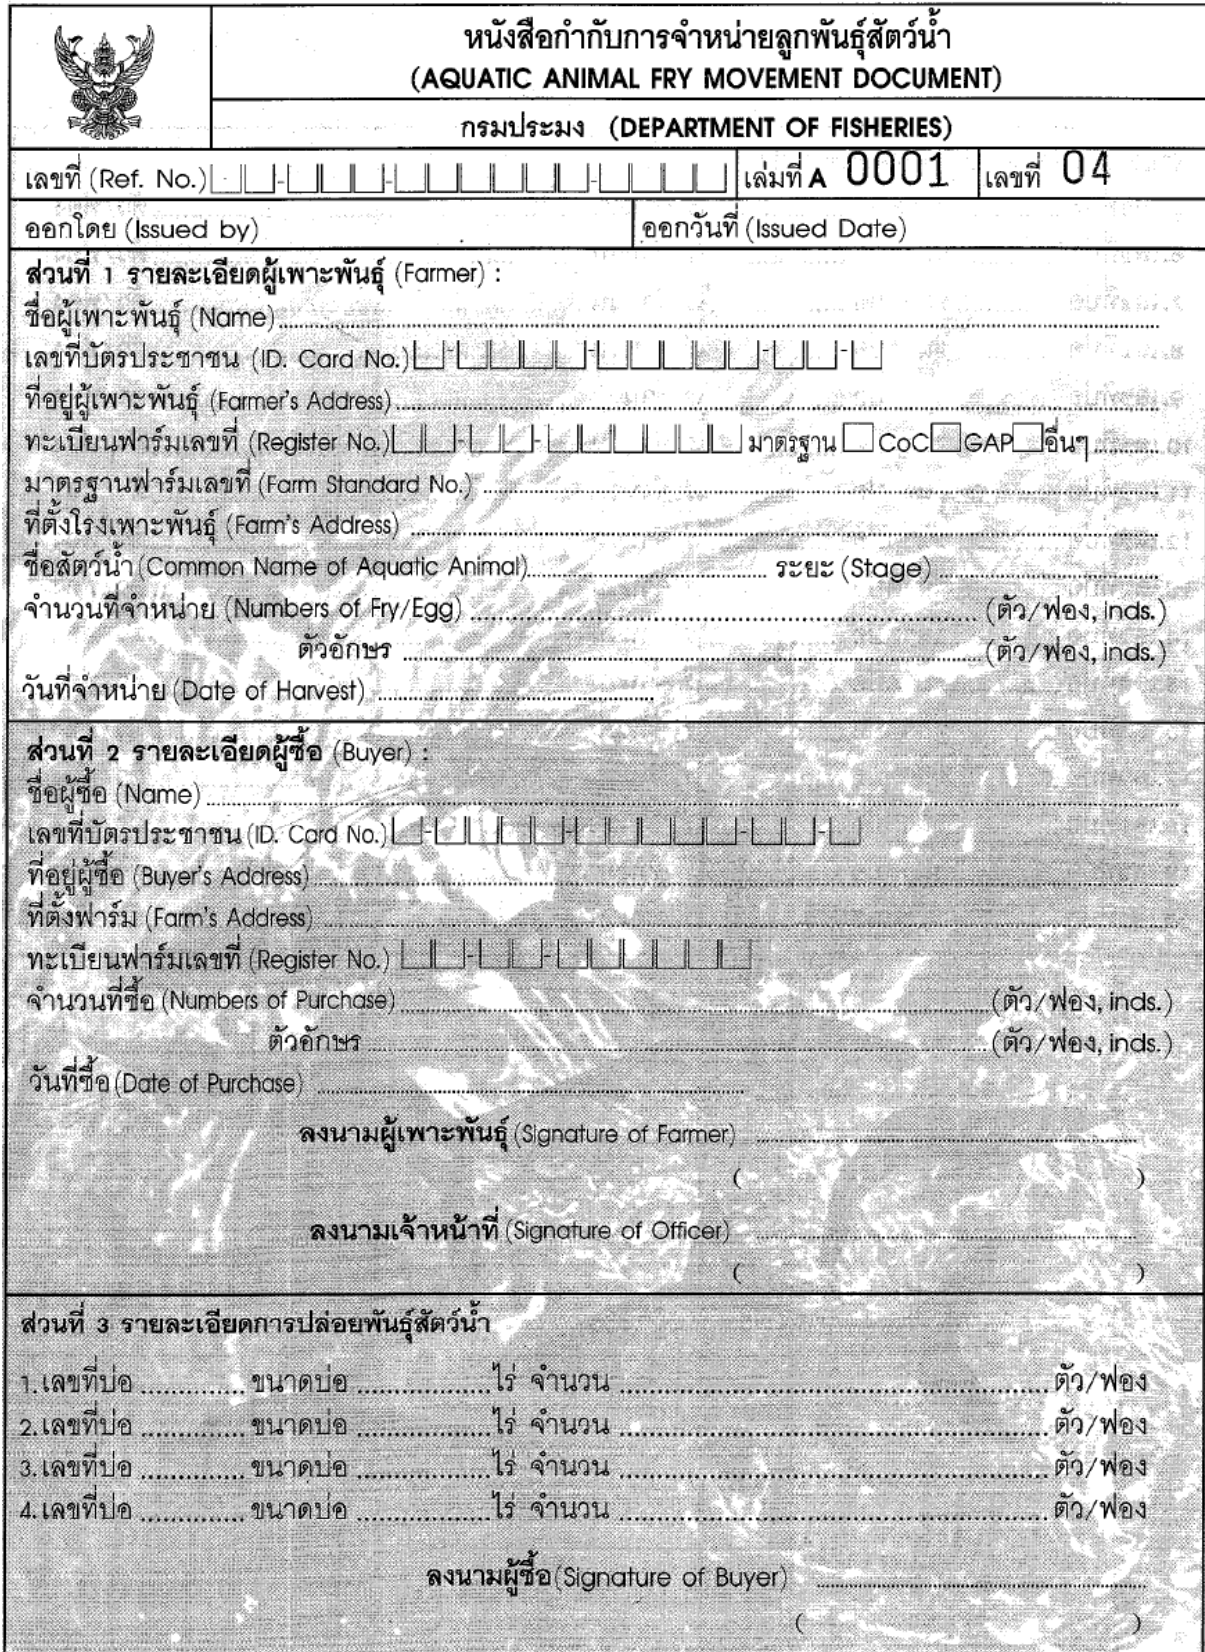 หนังสือกำกับการจำหน่ายลูกพันธุ์สัตว์น้ำ
(AQUATIC ANIMAL FRY MOVEMENT DOCUMENT)
กรมประมง (DEPARTMENT OF FISHERIES)
เลขที่ (Ref. No.) - - - เล่มที่ A 0001 เลขที่ 04
ออกโดย (Issued by) ออกวันที่ (Issued Date)
ส่วนที่ 1 รายละเอียดผู้เพาะพันธุ์ (Farmer) :
ชื่อผู้เพาะพันธุ์ (Name)
เลขที่บัตรประชาชน (ID. Card No.) - - - -
ที่อยู่ผู้เพาะพันธุ์ (Farmer's Address)
ทะเบียนฟาร์มเลขที่ (Register No.) - - มาตรฐาน CoC GAP อื่นๆ
มาตรฐานฟาร์มเลขที่ (Farm Standard No.)
ที่ตั้งโรงเพาะพันธุ์ (Farm's Address)
ชื่อสัตว์น้ำ (Common Name of Aquatic Animal) ระยะ (Stage)
จำนวนที่จำหน่าย (Numbers of Fry/Egg) (ตัว/ฟอง, inds.)
ตัวอักษร (ตัว/ฟอง, inds.)
วันที่จำหน่าย (Date of Harvest)
ส่วนที่ 2 รายละเอียดผู้ซื้อ (Buyer) :
ชื่อผู้ซื้อ (Name)
เลขที่บัตรประชาชน (ID. Card No.) - - - -
ที่อยู่ผู้ซื้อ (Buyer's Address)
ที่ตั้งฟาร์ม (Farm's Address)
ทะเบียนฟาร์มเลขที่ (Register No.) - -
จำนวนที่ซื้อ (Numbers of Purchase) (ตัว/ฟอง, inds.)
ตัวอักษร (ตัว/ฟอง, inds.)
วันที่ซื้อ (Date of Purchase)
ลงนามผู้เพาะพันธุ์ (Signature of Farmer)
( )
ลงนามเจ้าหน้าที่ (Signature of Officer)
( )
ส่วนที่ 3 รายละเอียดการปล่อยพันธุ์สัตว์น้ำ
1. เลขที่บ่อ ขนาดบ่อ ไร่ จำนวน ตัว/ฟอง
2. เลขที่บ่อ ขนาดบ่อ ไร่ จำนวน ตัว/ฟอง
3. เลขที่บ่อ ขนาดบ่อ ไร่ จำนวน ตัว/ฟอง
4. เลขที่บ่อ ขนาดบ่อ ไร่ จำนวน ตัว/ฟอง
ลงนามผู้ซื้อ (Signature of Buyer)
( )